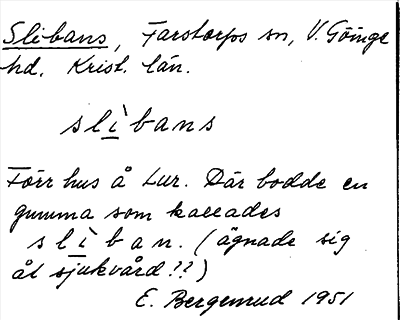 Slibans, Farstorps sn, V. Göinge
hd. Krist. län.
slì̱bans
Förr hus å Lur. Där bodde en
gumma som kallades
slì̱ban. (ägnade sig
åt sjukvård??)
E. Bergenrud 1951